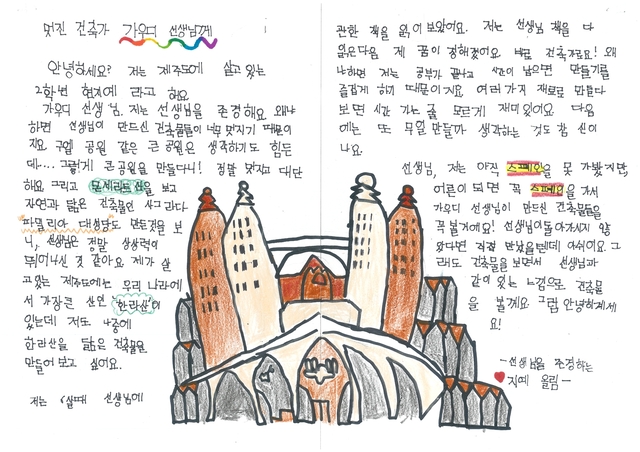 멋진 건축가 가우디 선생님께
안녕하세요? 저는 제주도에 살고 있는
2학년 현지예 라고 해요
가우디 선생님. 저는 선생님을 존경해요 왜냐
하면 선생님이 만드신 건축물들이 너무 멋지기 때문이
지요 구엘 공원 같은 큰 공원은 생각하기도 힘든
데.... 그렇게 큰공원을 만들다니! 정말 멋지고 대단
해요 그리고 몬세라트산을 보고
자연과 닮은 건축물인 사그라다
파밀리아 대성당도 만든것을 보
니, 선생님은 정말 상상력이
뛰어나신 것 같아요 제가 살
고있는 제주도에는 우리 나라에
서 가장큰 산인 '한라산'이
있는데 저도 나중에
한라산을 닮은 건축물을
만들어 보고 싶어요.
저는 6살때 선생님에
관한 책을 읽어 보았어요. 저는 선생님 책을 다
읽은다음 제 꿈이 정해졌어요 바로 건축가로요! 왜
냐하면 저는 공부가 끝나고 시간이 남으면 만들기를
즐겁게 하기 때문이지요 여러가지 재료로 만들다
보면 시간 가는 줄 모르게 재미있어요. 다음
에는 또 무얼 만들까 생각하는 것도 참 신이
나요.
선생님, 저는 아직 스페인을 못 가봤지만,
어른이 되면 꼭 스페인을 가서
가우디 선생님이 만드신 건축물들을
꼭 볼거예요! 선생님이 돌아가시지 않
았다면 직접 만났을텐데 아쉬워요. 그
래도 건축물을 보면서 선생님과
같이 있는 느낌으로 건축물
을 볼게요 그럼 안녕하계세
요!
-선생님을 존경하는
지예 올림-